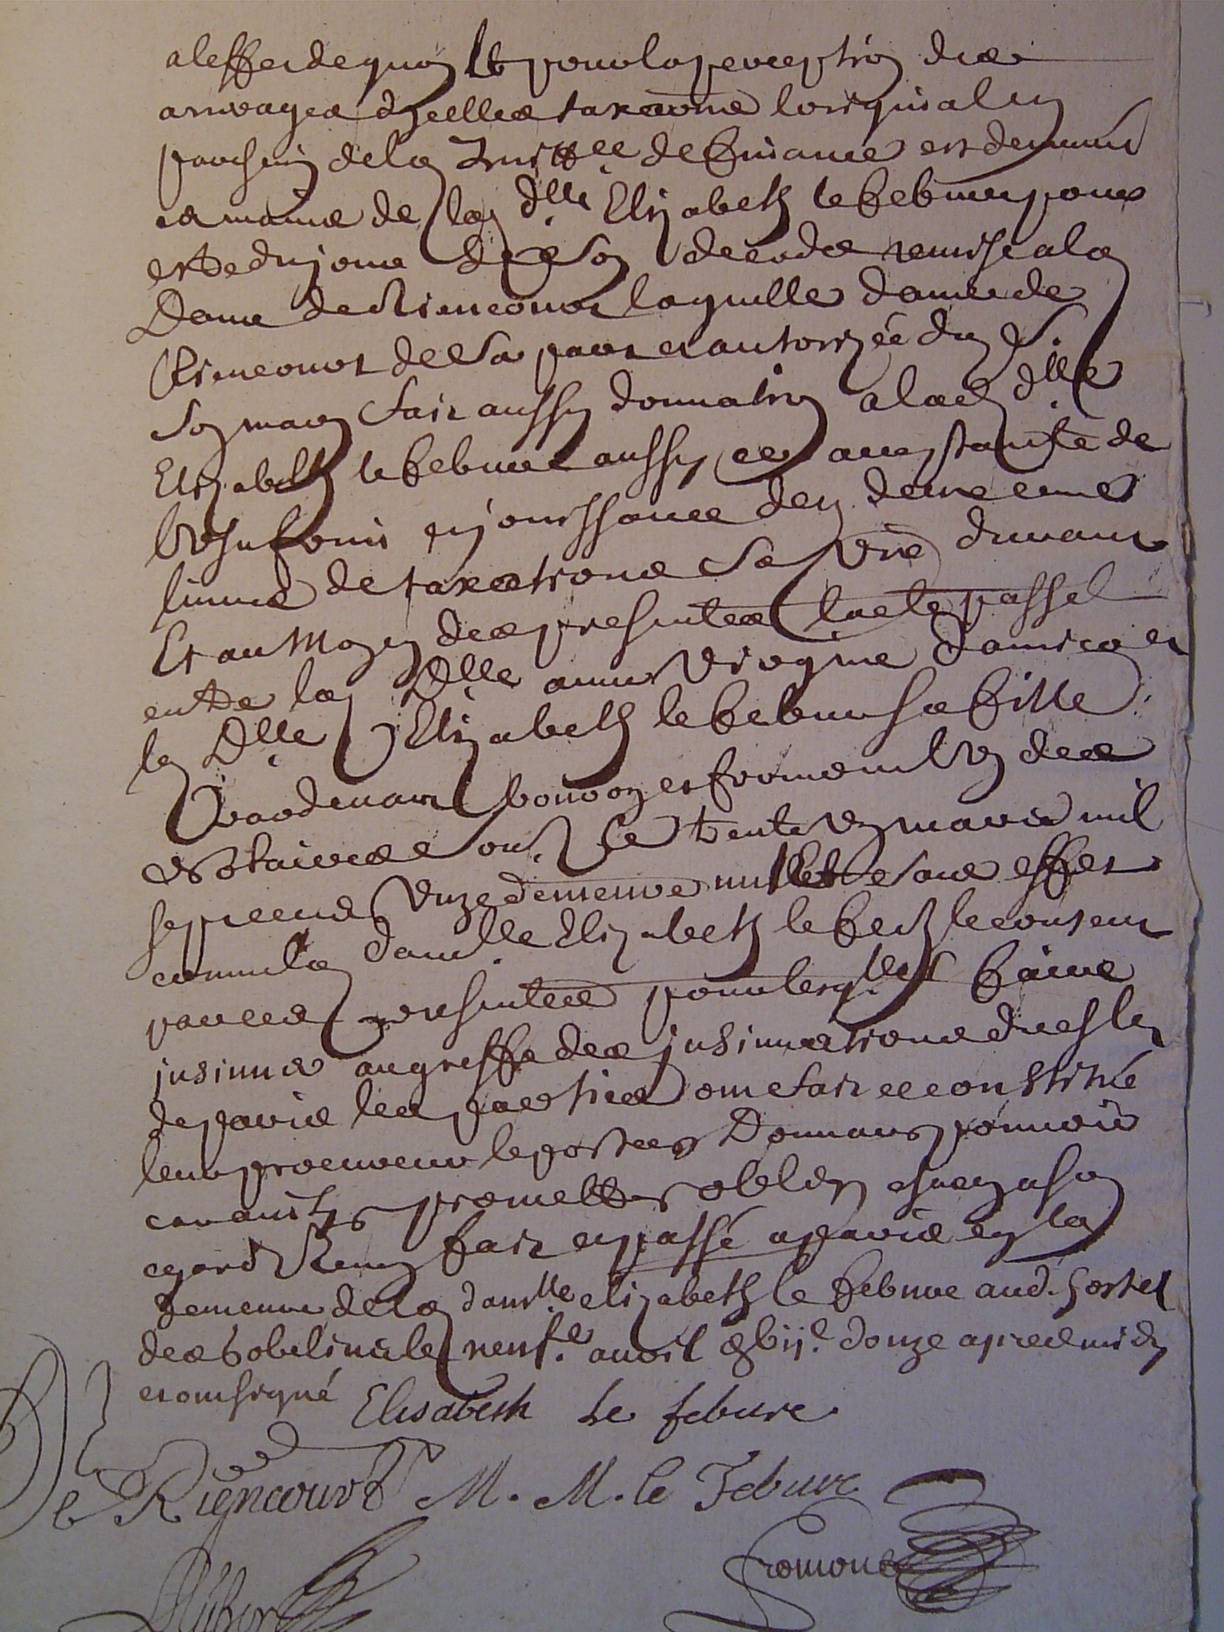 a leffet de quoy et pour la perception des
arrerages d'jcelles taxations loriginal en
parchemin de la de finance est demeuré
es mains de lad. dlle Elizabeth lefebure pour
estre du jour de son deceds remise a la
Dame de Riencourt laquelle dame de
Riencourt de sa part et autorizée dud. Sr.
son mary fait aussy donnation a lad. dlle
Elizabeth lefebure aussy ce acceptante de
lusufruit et jouissance desd. deux cens
liures de taxations sa vie durant
Et au moyen des presentes lacte passé
entre lad. Dlle anne et
lad. Dlle Elizabeth lefebure sa fille
pardeuant et fromont lun des
notaires sousz. le trente un mars mil
sept cens unze demeure nul et sans effet
comme lad. damlle Elizabeth lefeb. le consent
par ces presentes pour lesqlles faire
insinuer au greffe des insinuations du chlet
de paris les parties ont fait et constitué
leur procureur le porteur Donnant pouuoir
promettant obligeant chacun a son
egard Renonceant fait et passé a paris en la
demeure de lad. damlle elizabeth lefebure aud. hostel
des Gobelins le neufe. auril gbijc. douze apres midy
et ont signé
Elisabeth Le febure
De Riencourt M. M. le Febure
fromont